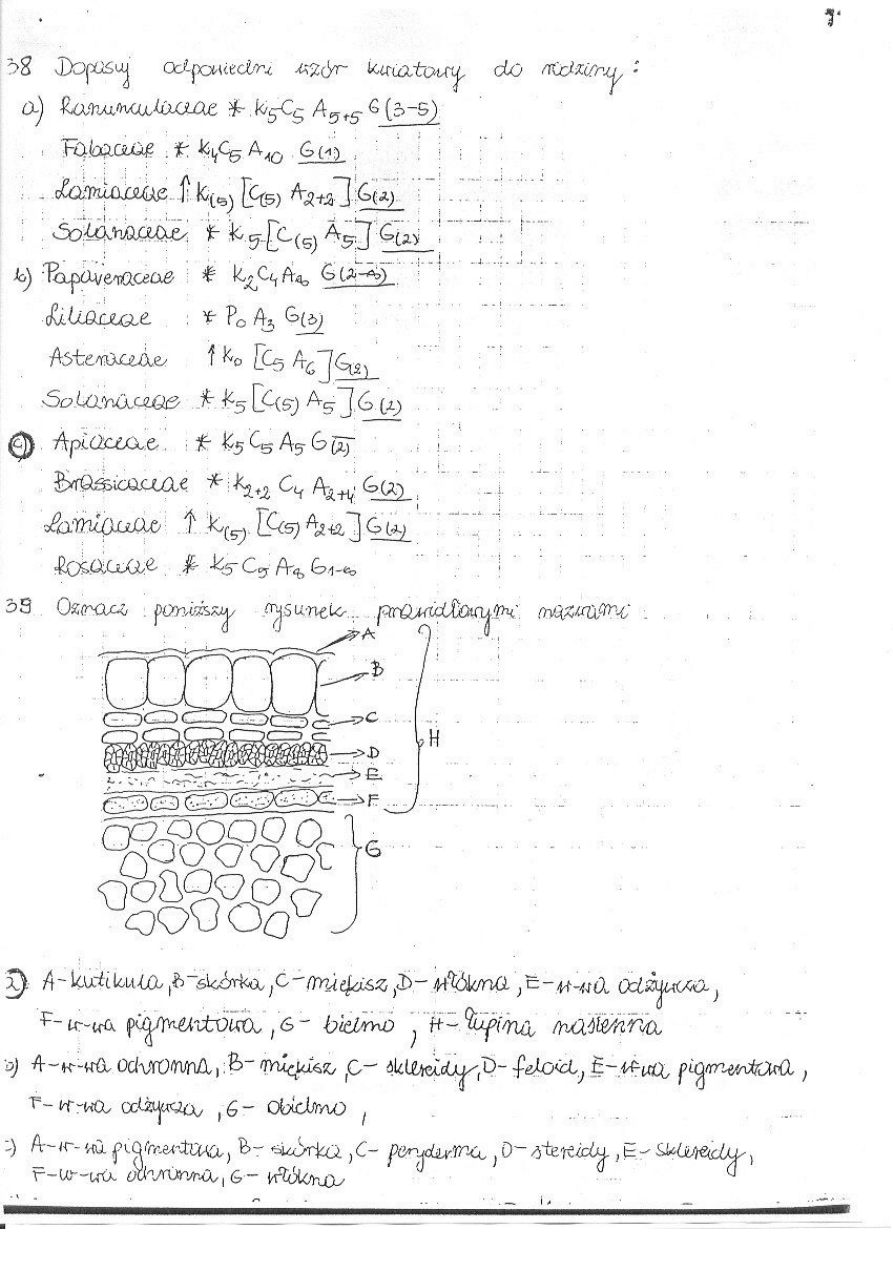 38 Dopasuj odpowiedni wzór kwiatowy do rodziny:
a) Ranunculaceae * K5C5 A5+5 G(3-5)
Fabaceae * K4C5 A10 G(1)
Lamiaceae ↑K(5) [C(5) A2+2] G(2)
Solanaceae * K5[C(5) A5] G(2)
b) Papaveraceae * K2C4A∞ G(2-∞)
Liliaceae * P0 A3 G(3)
Asteraceae ↑K0 [C5 A6] G(2)
Solanaceae * K5[C(5) A5] G(2)
c) Apiaceae * K5 C5 A5 G(2)
Brassicaceae * K2+2 C4 A2+4 G(2)
Lamiaceae ↑ K(5) [C(5) A2+2] G(2)
Rosaceae * K5 C5 A∞ G1-∞
39 Oznacz poniższy rysunek prawidłowymi nazwami
A
B
C
D
E
F
H
G
a) A-kutikula, B-skórka, C-miękisz, D-włókna, E-w-wa odżywcza,
F-w-wa pigmentowa, G-bielmo, H-łupina nasienna
b) A-w-wa ochronna, B-miękisz, C-sklereidy, D-feloid, E-w-wa pigmentowa,
F-w-wa odżywcza, G-obielmo,
c) A-w-wa pigmentowa, B-skórka, C-peryderma, D-stereidy, E-sklereidy,
F-w-wa ochronna, G-włókna